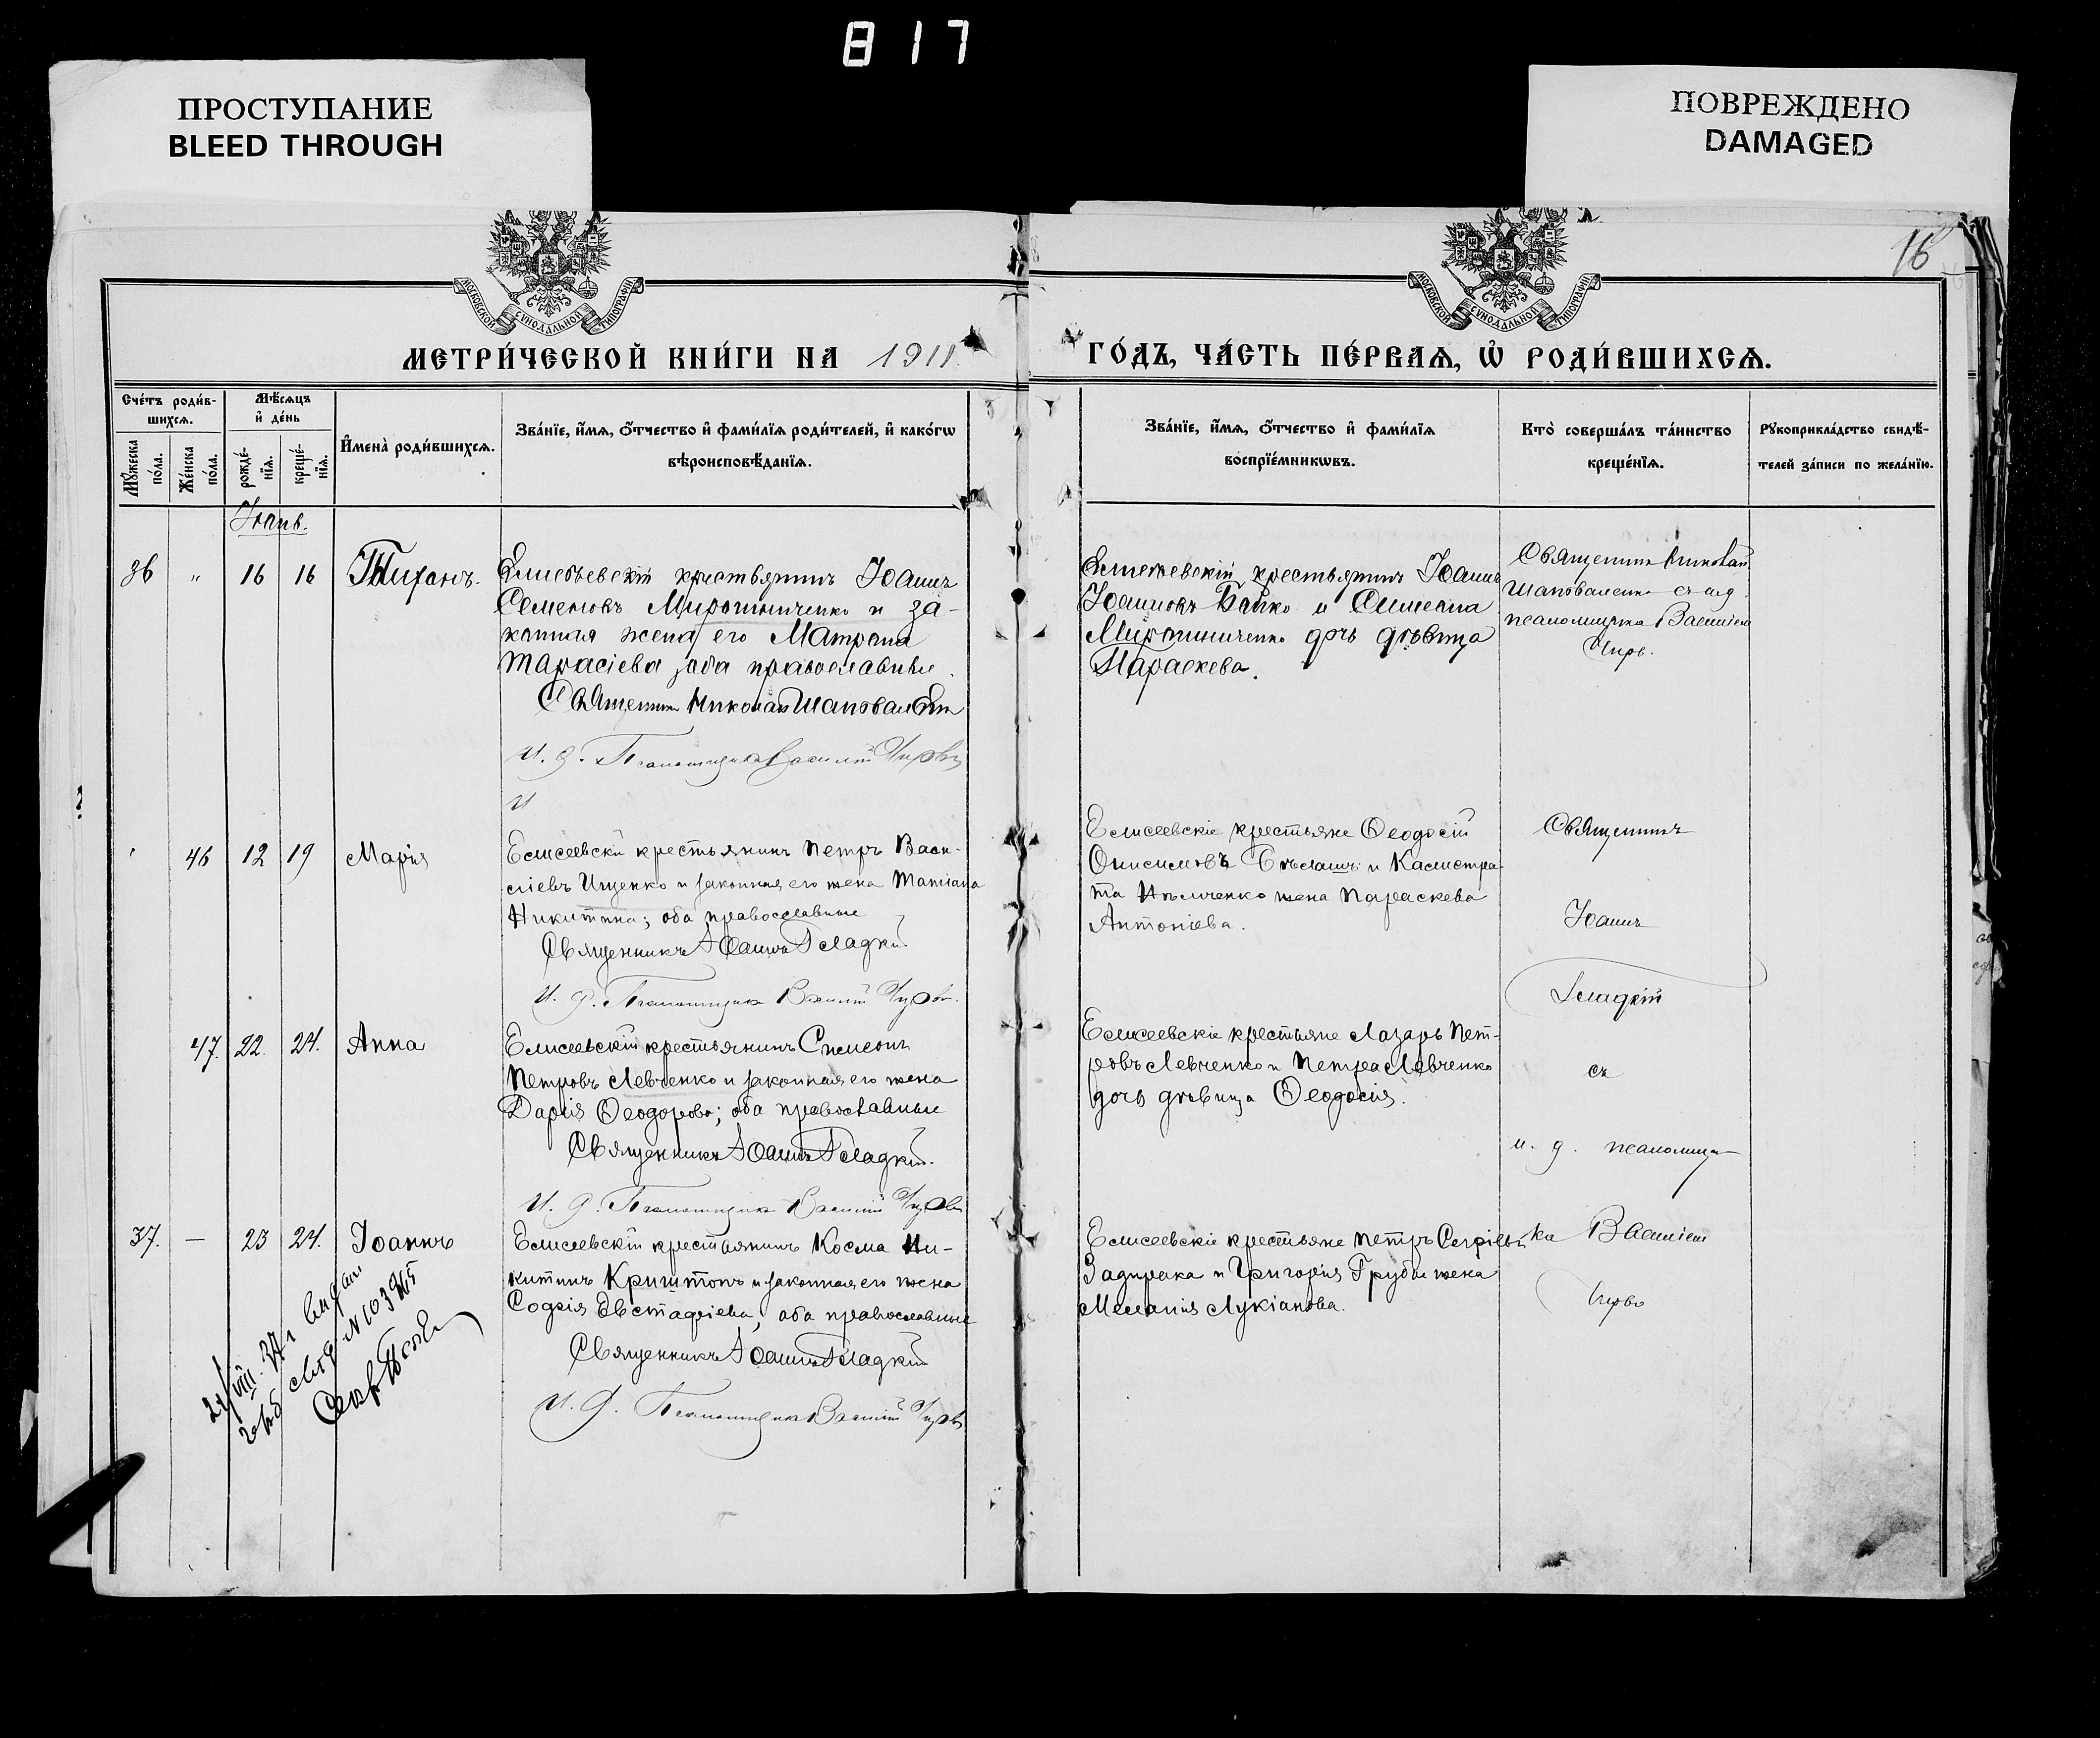 817
ПРОСТУПАНИЕ
BLEED THROUGH
ПОВРЕЖДЕНО
DAMAGED
16
МОСКОВСКОЙ СѴНОДАЛЬНОЙ ТИПОГРАФІИ
МОСКОВСКОЙ СѴНОДАЛЬНОЙ ТИПОГРАФІИ
МЕТРИ́ЧЕСКОЙ КНИ́ГИ НА 1911.
ГО́ДЪ, ЧА́СТЬ ПЕ́РВАѦ, Ѡ҆ РОДИ́ВШИХСѦ.
Сче́тъ роди́в-
шихсѧ.
Мѣ́сѧцъ
и҆ де́нь
Мꙋ́жеска
по́ла.
Же́нска
по́ла.
рожде́-
нїѧ.
креще́-
нїѧ.
И҆мена̀ роди́вшихсѧ.
Зва́нїе, и҆́мѧ, ѻ҆́тчество и҆ фами́лїѧ роди́телей, и҆ како́гѡ
вѣроисповѣ́данїѧ.
Зва́нїе, и҆́мѧ, ѻ҆́тчество и҆ фами́лїѧ
воспрїе́мникѡвъ.
Кто̀ соверша́лъ та́инство
креще́нїѧ.
Рꙋкоприкла́дство свидѣ́-
телей за́писи по жела́нїю.
36 " 16 16 Тихонъ.
крестьянинъ Іоаннъ
Семеновъ Мирошниченко и за-
конная жена его Матрона
Тарасіева, оба православные.
Священникъ Николай
И. д. Псаломщика Василій
И
крестьянинъ Іоаннъ
Іоанновъ Байко и Симеона
Мирошниченко дочь дѣвица
Параскева.
Священникъ Николай
Шаповаленко съ и.д.
псаломщика Василіем
46 12 19 Марія
Елисеевскій крестьянинъ Петръ Васи-
ліевъ Ищенко и законная его жена Татіана
Никитина; оба православные
Священникъ Іоаннъ Гладкій
И. д. Псаломщика Василій
Елисеевскіе крестьяне Ѳеодосій
Онисимовъ и Калистра-
та жена Параскева
Антоніева.
Священникъ
Іоаннъ
Гладкій
47. 22. 24. Анна
Елисеевскій крестьянинъ Симеонъ
Петровъ Левченко и законная его жена
Дарія Ѳеодорова; оба православные
Священникъ Іоаннъ Гладкій.
И. д. Псаломщика Василій
Елисеевскіе крестьяне Лазарь Пет-
ровъ Левченко и Петра Левченко
дочь дѣвица Ѳеодосія.
съ
и. д. псаломщи-
37. — 23 24. Іоаннъ
Елисеевскій крестьянинъ Косма Ни-
китинъ Криштопъ и законная его жена
Софія Евстафіева; оба православные
Священникъ Іоаннъ Гладкій
И. д. Псаломщика Василій
Елисеевскіе крестьяне Петръ Сергіевъ
Задирака и Григорія Грубы жена
Меланія Лукіанова.
ка Василіем
VIII. 37 г